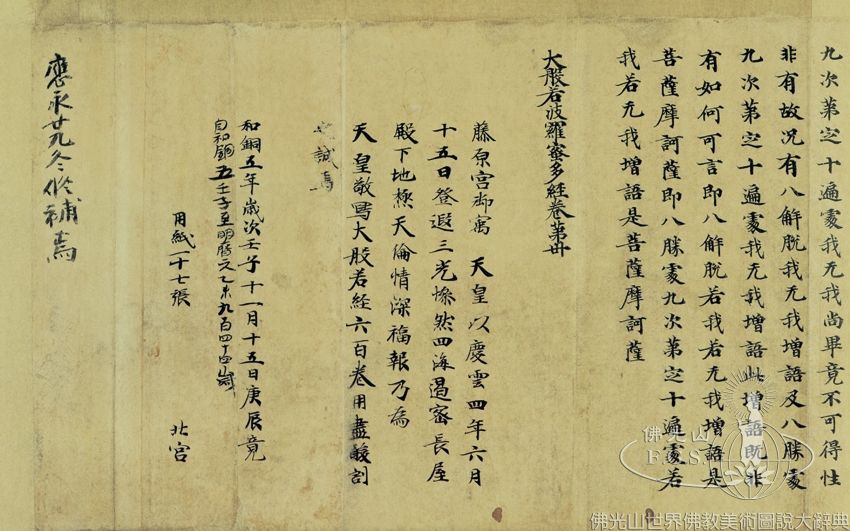 九次第定十遍處我无我尚畢竟不可得性
非有故况有八解脫我无我增語及八勝處
九次第定十遍處我无我增語此增語既非
有如何可言即八解脫若我若无我增語是
菩薩摩訶薩即八勝處九次第定十遍處若
我若无我增語是菩薩摩訶薩
大般若波羅蜜多經卷第卌
藤原宮御寓 天皇以慶雲四年六月
十五日登遐三光慘然四海遏密長屋
殿下地極天倫情深福報乃為
天皇敬寫大般若經六百卷用盡酸割
之誠焉
和銅五年歲次壬子十一月十五日庚辰竟
自和銅五壬子至明曆元乙未九百四十四歲
用紙一十七張 北宮
應永廿九冬修補焉
佛光山
F.G.S.
佛光山世界佛教美術圖說大辭典